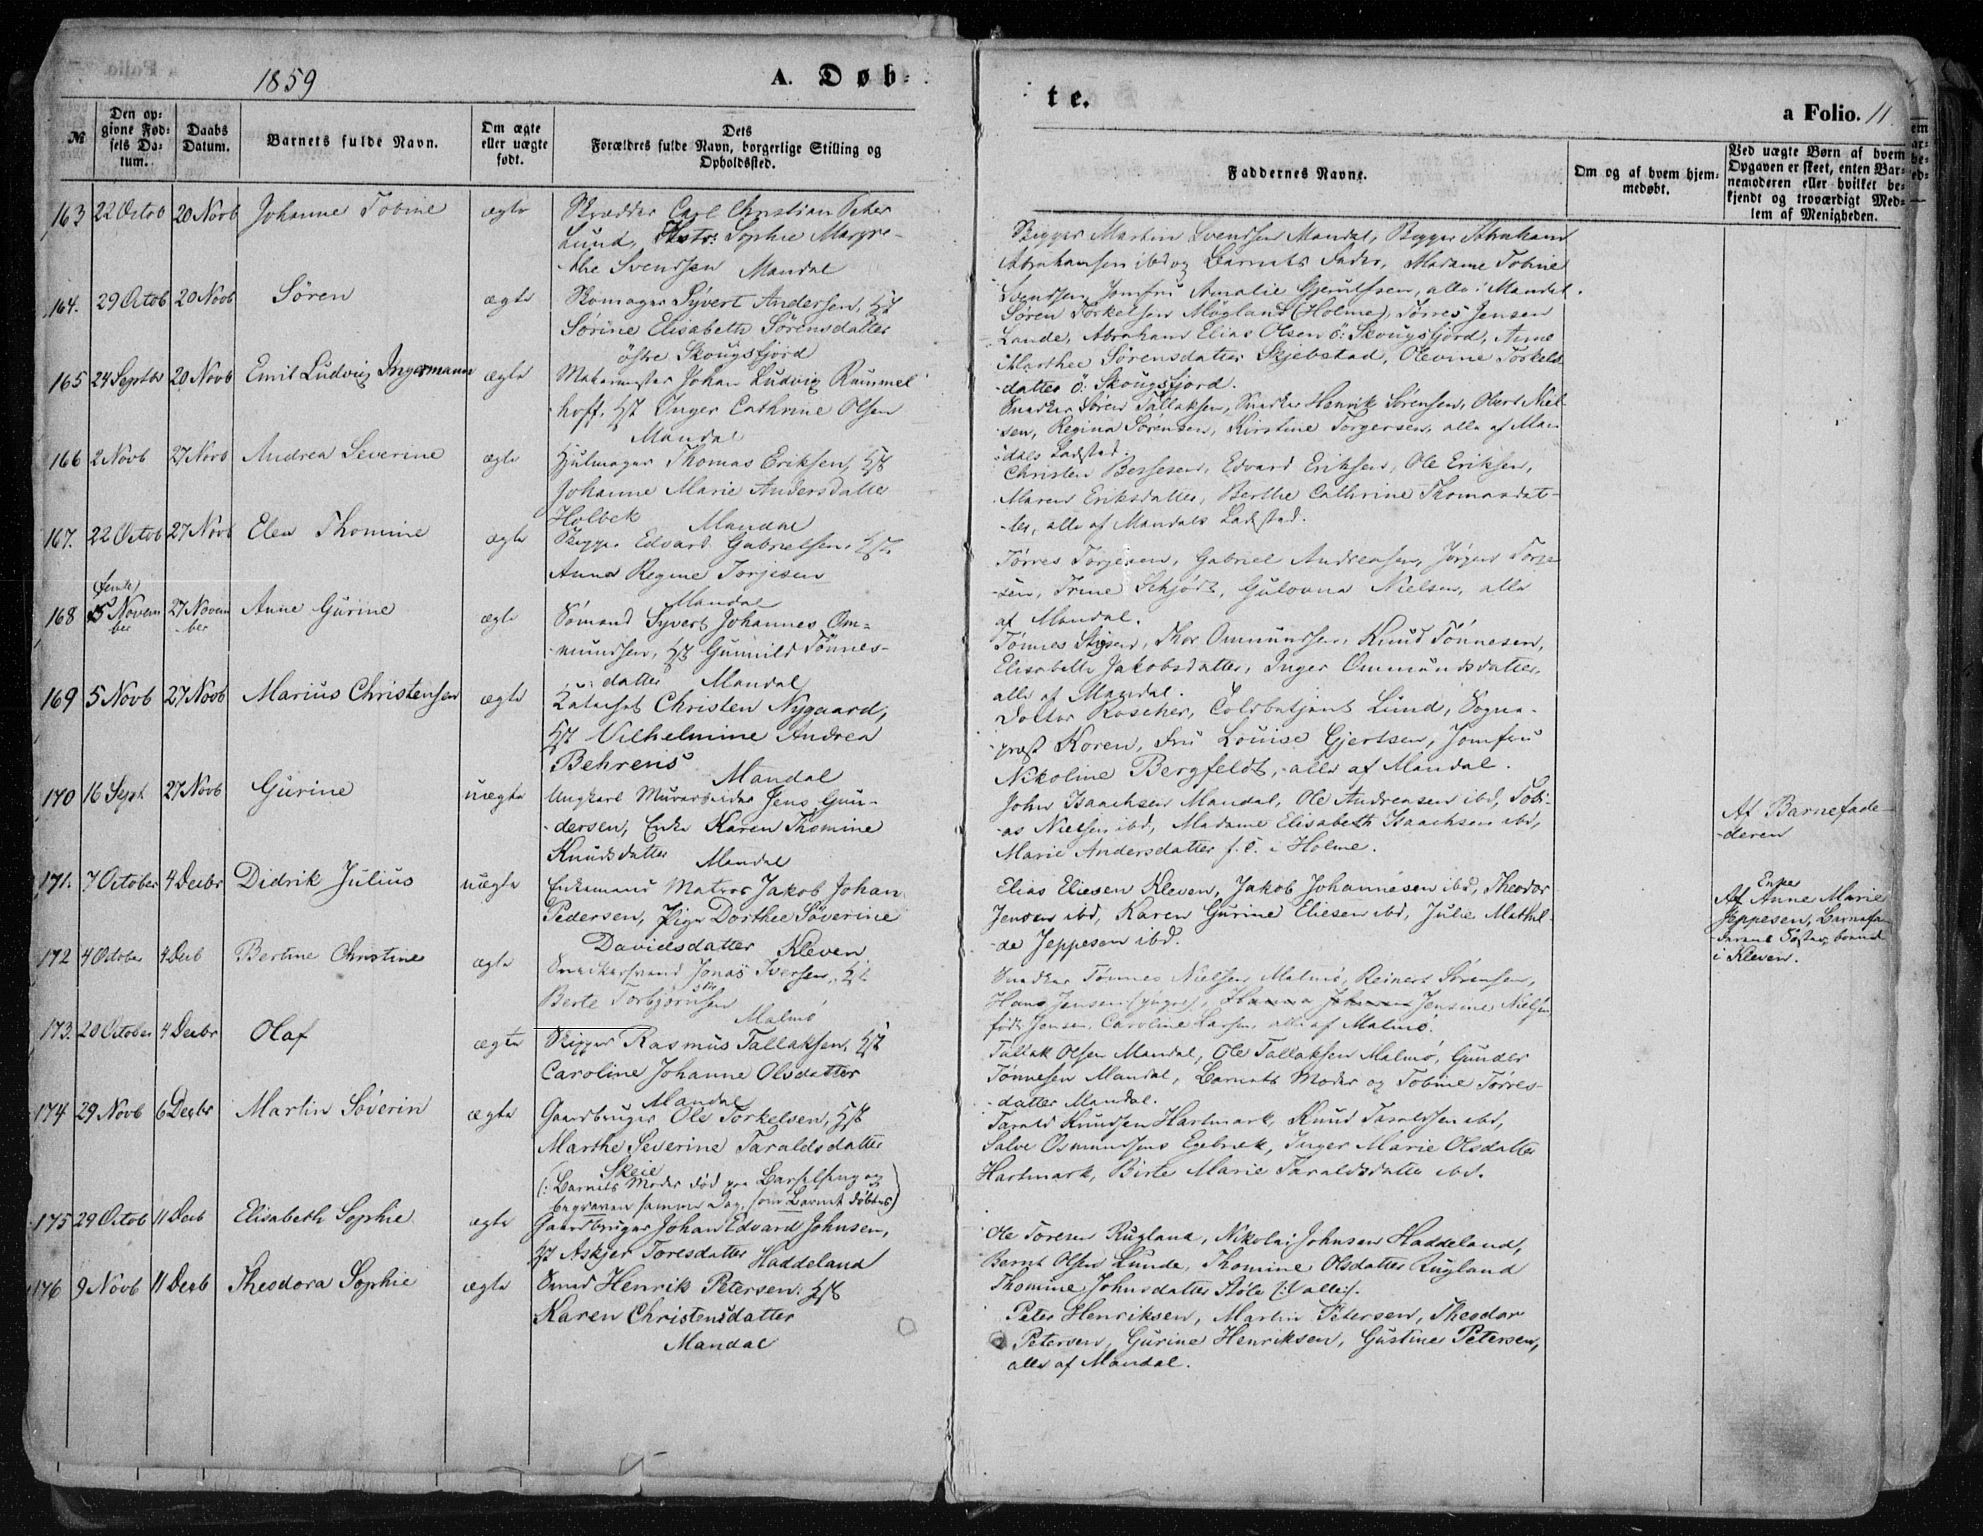 1859
A. Døb-
te.
a Folio. 11.
№
Den opgivne Fødsels Datum.
Daabs Datum.
Barnets fulde Navn.
Om ægte eller uægte født.
Dets Forældres fulde Navn, borgerlige Stilling og Opholdssted.
Faddernes Navne.
Om og af hvem hjemmedøbt.
Ved uægte Børn af hvem Opgaven er skeet, enten Barnemoderen eller hvilket bekjendt og troværdigt Medlem af Menigheden.
163 22 Octob 20 Novb Johanne Tobine ægte Skrædder Carl Christian Peter
Lund, Hustr: Sophie Margre-
the Svendsen Mandal
Skipper Martin Svendsen Mandal, Skipper Abraham
Abrahamsen ibd og Barnets Fader, Madame Tobine
Svendsen, Jomfru Amalie Gjerulfsen, alle i Mandal.
164. 29 Octob 20 Novb Sören ægte Skomager Syvert Andersen, Hst
Sörine Elisabeth Sörensdatter
östre Skougsfjord
Sören Torkelsen Mögland (Holme), Törres Jensen
Lande, Abraham Elias Olsen ö: Skougsfjord, Anne
Marthee Sörensdatter Skjebstad, Olevine Torkels-
datter ö: Skougsfjord.
165 24 Septbr 20 Novb Emil Ludvig Ingermann ægte Malermester Johan Ludvig Rummel
hoff, Hst Inger Cathrine Olsen
Mandal
Snedker Sören Tallaksen, Snedker Henrik Sörensen, Olert Niel-
sen, Regina Sörensen, Kirstine Torgersen, alle af Man
dals Ladsted.
166 2 Novb 27 Novb Andrea Severine ægte Hjulmager Thomas Eriksen, Hst
Johanne Marie Andersdatter
Holbek Mandal
Christen Bessesen, Edvard Eriksen, Ole Eriksen,
Maren Eriksdatter, Berthe Cathrine Thomasdat-
ter, alle af Mandals Ladsted.
167. 22 Octob 27 Novb Elen Thomine ægte Skipper Edvard Gabrielsen, Hst
Anna Regine Torjesen
Mandal
Törres Torjesen, Gabriel Andreasen, Jörgen Torje-
sen, Trine Schjödt, Gulovna Nielsen, alle
af Mandal.
(femte)
168 5 Novem
ber 27 Novem
-ber Anne Gurine ægte Sömand Syvert Johannes Om-
mundsen, Hst Gunnild Tönnes-
datter Mandal
Tönnes Stigsen, Thor Ommundsen, Knud Tönnesen,
Elisabeth Jakobsdatter, Inger Ommundsdatter,
alle af Mandal.
169 5 Novb 27 Novb Marius Christensen ægte Christen Nygaard,
Hst Vilhelmine Andrea
Behrens Mandal
Doktor Roscher, Toldbetjent Lund, Sogne-
præst Koren, Fru Louise Gjertsen, Jomfru
Nikoline Bergfeldt, alle af Mandal.
170 16 Sept 27 Novb Gurine uægte Ungkarl Murarbeider Jens Gun-
dersen, Enke Karen Thomine
Knudsdatter Mandal
John Isaachsen Mandal, Ole Andreasen ibd, Tobi-
as Nielsen ibd, Madame Elisabeth Isaachsen ibd,
Marie Andersdatter f. E. i Holme.
Af Barnefade-
deren
171. 7 October 4 Decbr Didrik Julius uægte Enkemand Matros Jakob Johan
Pedersen, Pige Dorthee Söverine
Davidsdatter Kleven
Elias Eliesen Kleven, Jakob Johannesen ibd, Theodor
Jensen ibd, Karen Gurine Eliesen ibd, Julie Mathil-
de Jeppesen ibd.
Enke
Af Anne Marie
Jeppesen, Barnefa-
derens Söster, boend
i Kleven.
172 4 October 4 Decb Bertine Christine ægte Snedkersvend Jonas Iversen, Hst
Berte Torbjörnsen
Malmö
Snedker Tönnes Nielsen Malmö, Reinert Sörensen,
Hans Jensen (yngre), Hanna Johanne Jensine Nielsen
född Jensen, Caroline Larsen, alle af Malmö.
173. 20 October 4 Decbr Olaf ægte Skipper Rasmus Tallaksen, Hst
Caroline Johanne Olsdatter
Mandal
Tallak Olsen Mandal, Ole Tallaksen Malmö, Gunder
Tönnesen Mandal, Barnets Moder og Tobine Törres-
datter Mandal.
174 29 Novb 6 Decbr Martin Söverin ægte Gaardbruger Ole Torkelsen, Hst
Marthe Severine Taraldsdatter
Skeie
(: Barnets Moder död paa Barselseng og
begraven samme Dag, som Barnet döbtes)
Tarald Knudsen Hartmark, Knud Taraldsen ibd,
Salve Osmundsen Egebræk, Inger Marie Olsdatter
Hartmark, Birte Marie Taraldsdatter ibd.
175 29 Octob 11 Decb Elisabeth Sophie ægte Gaardbruger Johan Edvard Johnsen,
Hst Askjer Toresdatter Haddeland
Ole Toresen Rugland, Nikolai Johnsen Haddeland,
Bernt Olsen Lunde, Thomine Olsdatter Rugland
Thomine Johnsdatter Stöle (: Valle :).
176 9 Novb 11 Decb Theodora Sophie ægte Smed Henrik Petersen, Hst
Karen Christensdatter
Mandal
Peter Henriksen, Martin Petersen, Theodor
Petersen, Gurine Henriksen, Gustine Petersen,
alle af Mandal.